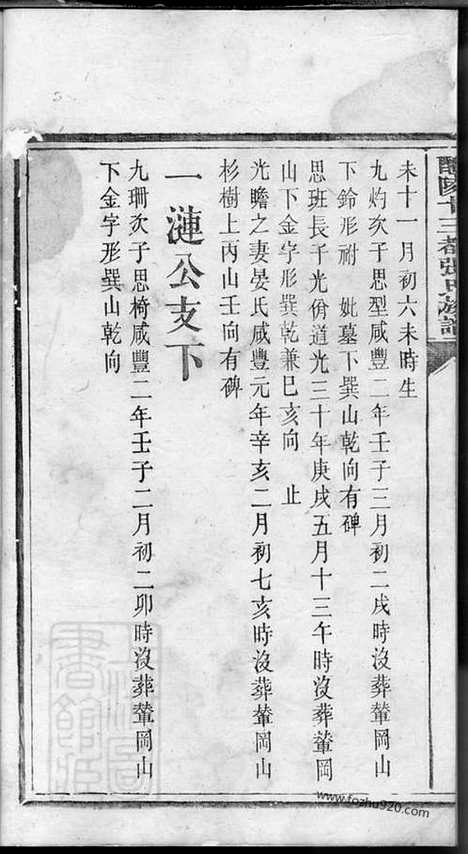 醴陵十三都張氏族譜
未十一月初六未時生
九灼次子思型咸豐二年壬子三月初二戌時沒葬輋岡山
下鈴形祔　妣墓下巽山乾向有碑
思班長子光佾道光三十年庚戌五月十三午時沒葬輋岡
山下金字形巽乾兼巳亥向　止
光瞻之妻晏氏咸豐元年辛亥二月初七亥時沒葬輋岡山
杉樹上丙山壬向有碑
一漣公支下
九珊次子思椅咸豐二年壬子二月初二卯時沒葬輋岡山
下金字形巽山乾向
www.fozhu920.com